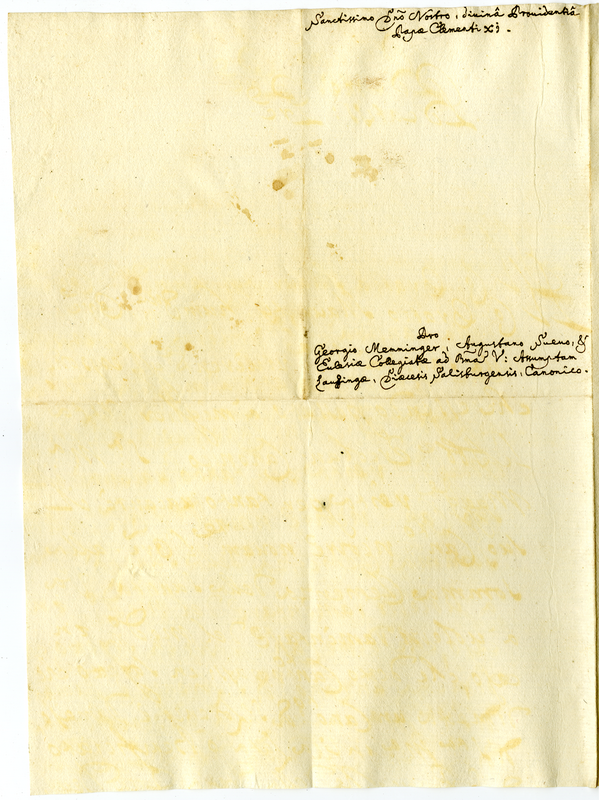 Sanctissimo Dnõ Nostro, divinâ Providentiâ
Papæ Clementi XI.
Pro
Georgio Menninger, Augustano Suevo, &
Ecclesiæ Collegiatæ ad Bmã V: Assumptam
Lauffingæ, Diæcesis Salisburgensis, Canonico.